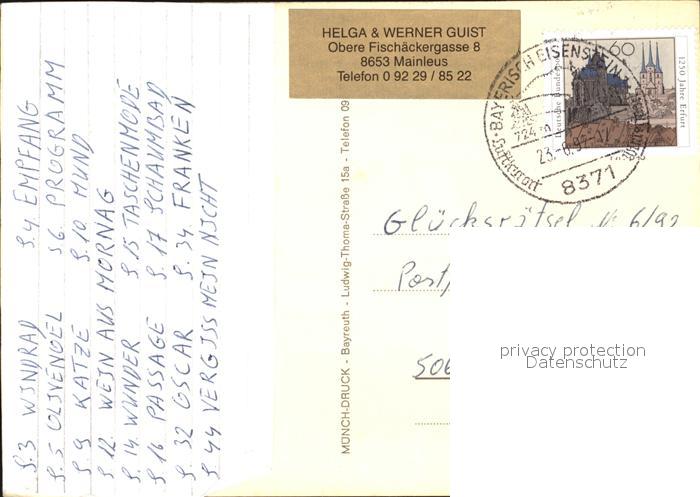 HELGA & WERNER GUIST
Obere Fischäckergasse 8
8653 Mainleus
Telefon 0 92 29 / 85 22
60
Deutsche Bundespost
1250 Jahre Erfurt
BAYERISCH EISENSTEIN
Luftkurort
8371
S.3 WINDRAD S.4 EMPFANG
S.5 OLIVENOEL S6. PROGRAMM
S.9 KATZE S.10 MUND
S.12 WEIN AUS MORNAG
S.14 WUNDER S.15 TASCHENMODE
S.16 PASSAGE S.17 SCHAUMBAD
S.32 OSCAR S.34 FRANKEN
S.44 VERGISS MEIN NICHT
MÜNCH-DRUCK - Bayreuth - Ludwig-Thoma-Straße 15a - Telefon 09
Glücksrätsel 6/92
Post
506
privacy protection
Datenschutz